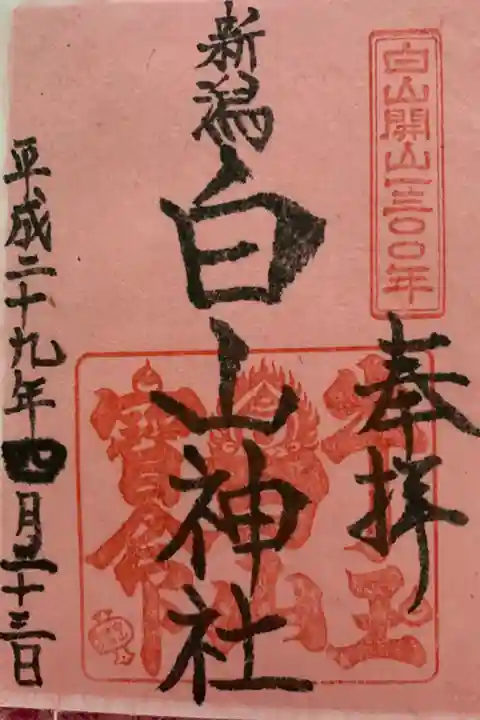 白山開山一三〇〇年
奉拝
新潟
白山神社
平成二十九年四月二十三日
牛王
寳命